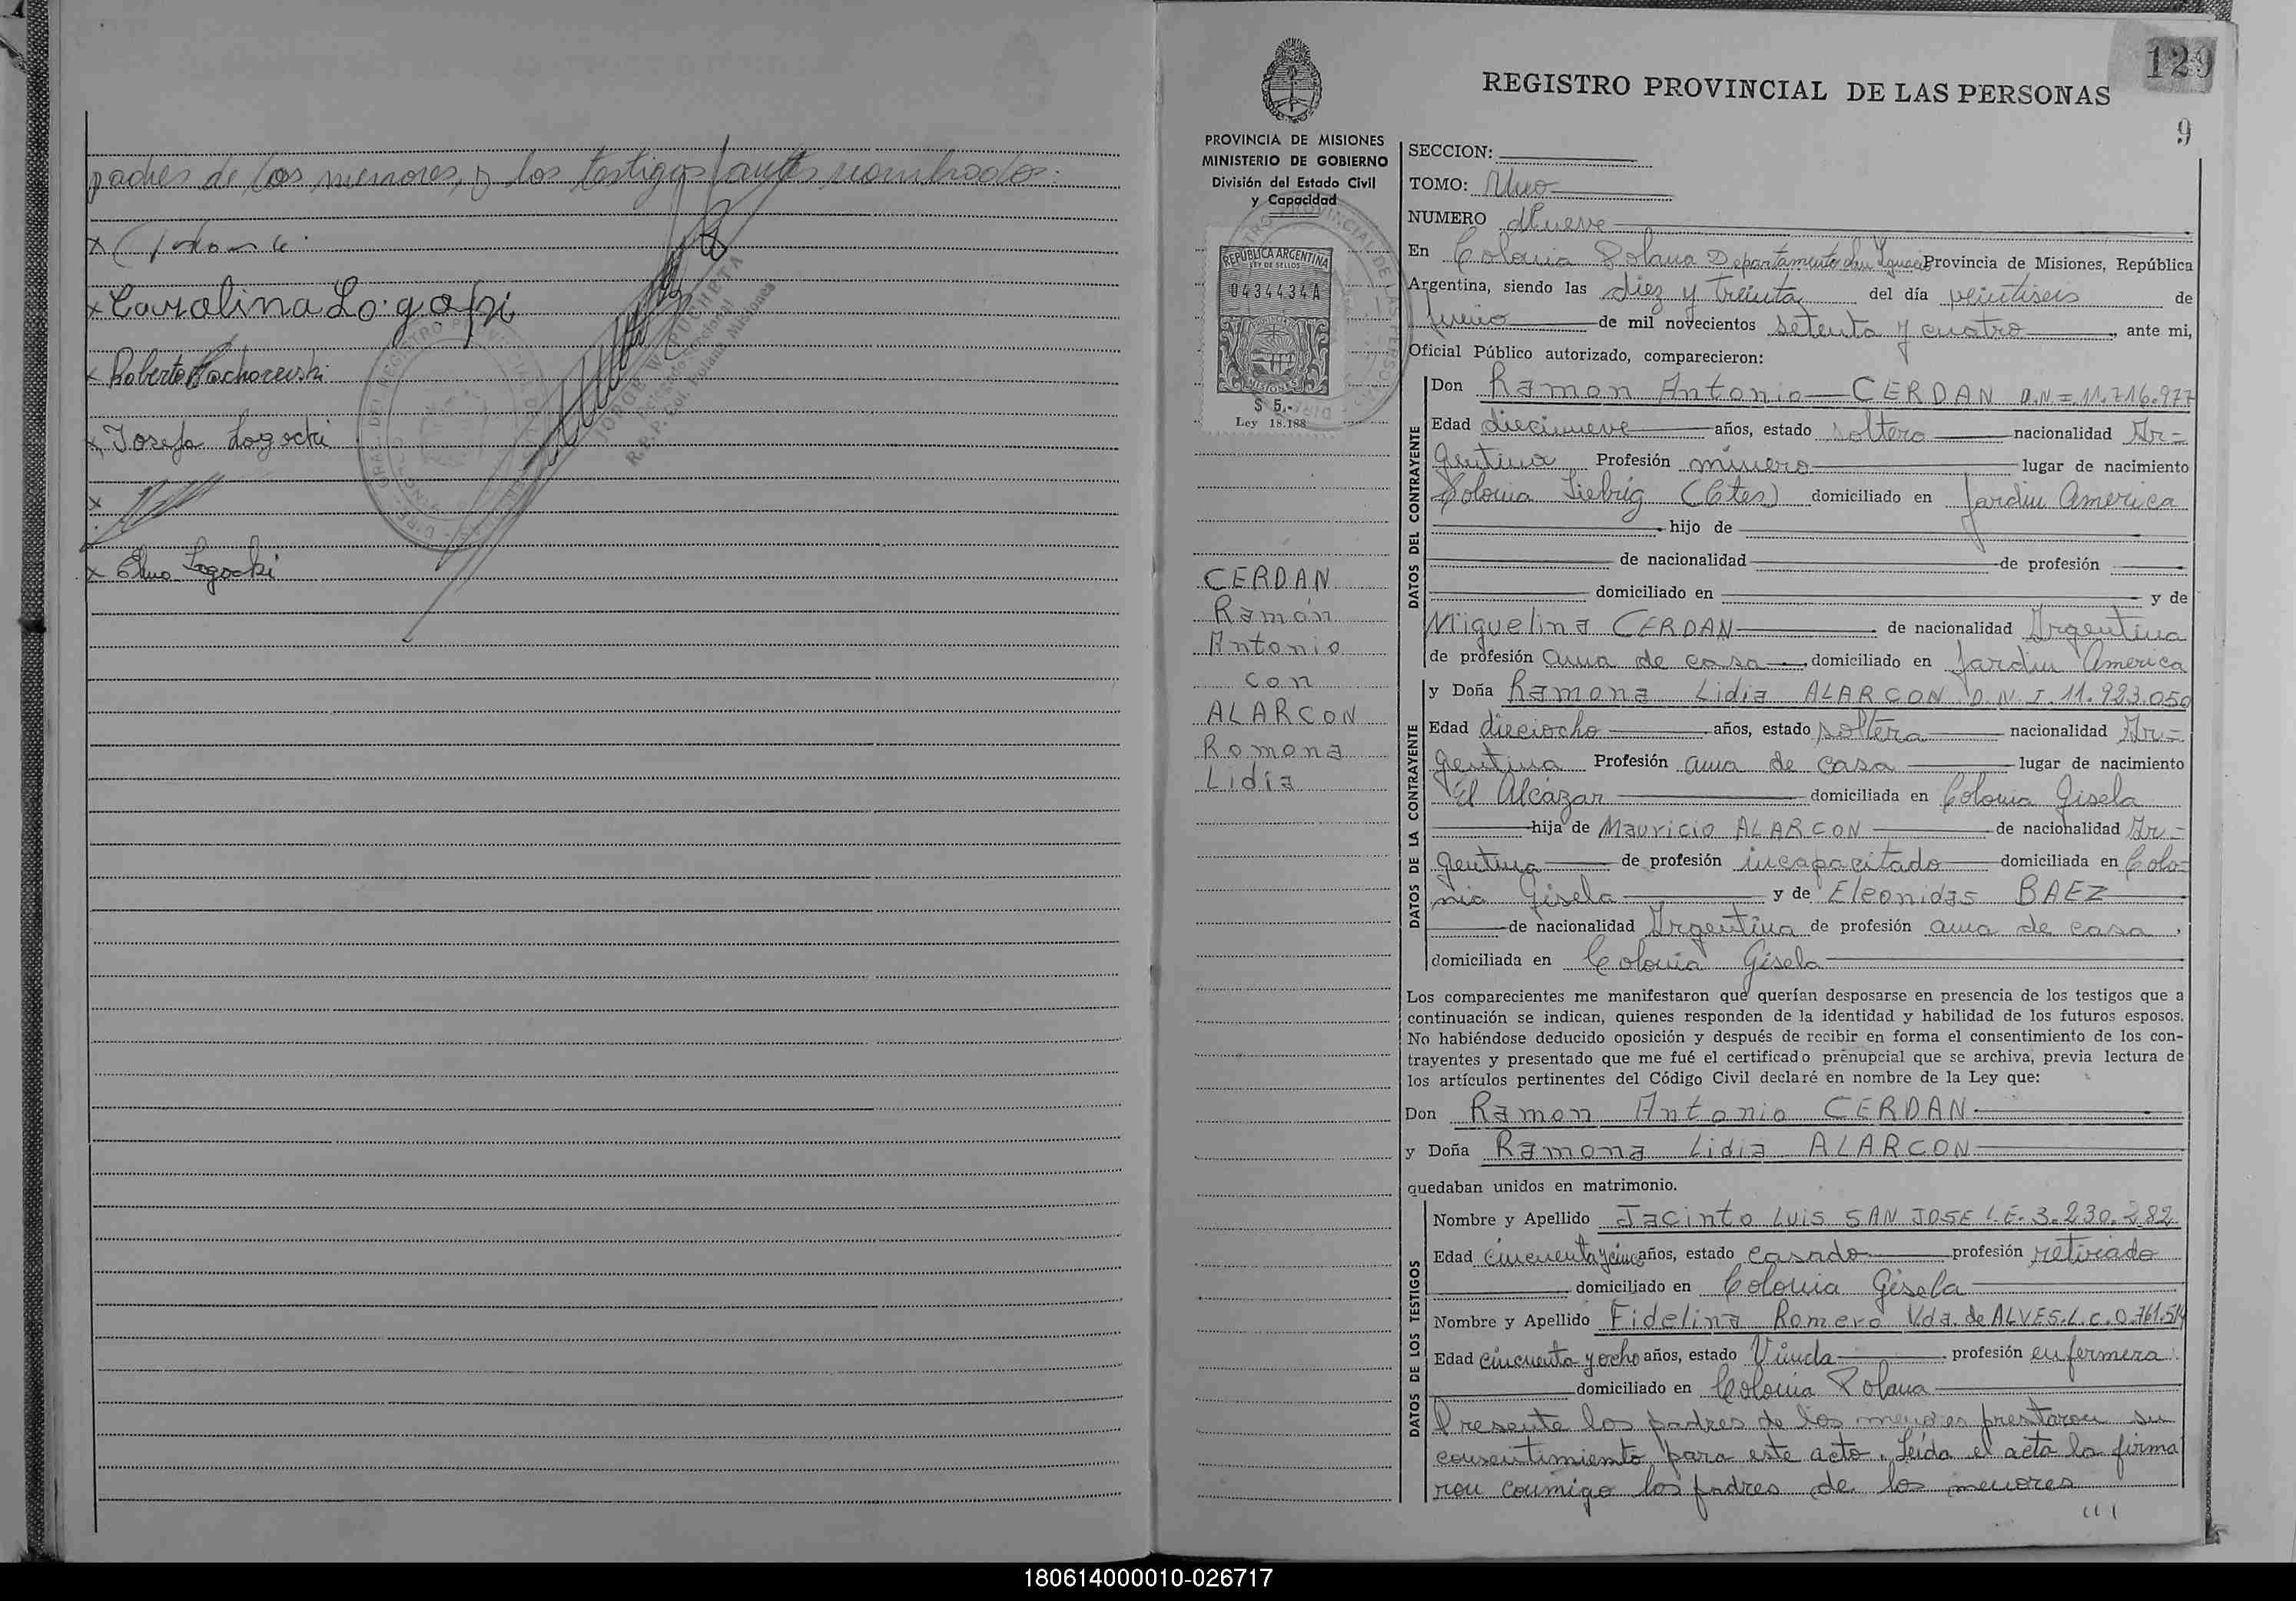 padres de los menores, y los testigos antes nombrados:
x
x Carolina Logoski
x Roberto
x Josefa Logocki
x
x Elno Logocki
JORGE W. PUCHETA
Delegado Seccional
R.P.P. Col. Polana Misiones
129
REGISTRO PROVINCIAL DE LAS PERSONAS
9
PROVINCIA DE MISIONES
MINISTERIO DE GOBIERNO
División del Estado Civil
y Capacidad
REPUBLICA ARGENTINA
LEY DE SELLOS
0434434A
MISIONES
$ 5.-
Ley 18.188
CERDAN
Ramón
Antonio
con
ALARCON
Romona
Lidia
SECCION:
TOMO: Uno
NUMERO Nueve
En Colonia Polana Departamento San Ignacio Provincia de Misiones, República
Argentina, siendo las diez y treinta del día veintiseis de
junio de mil novecientos setenta y cuatro, ante mi,
Oficial Público autorizado, comparecieron:
DATOS DEL CONTRAYENTE
Don Ramon Antonio CERDAN D.N.I. 11.716.977
Edad diecinueve años, estado soltero nacionalidad Ar=
gentina Profesión minero lugar de nacimiento
Colonia Liebig (Ctes) domiciliado en Jardin America
hijo de
de nacionalidad de profesión
domiciliado en y de
Miguelina CERDAN de nacionalidad Argentina
de profesión ama de casa, domiciliado en Jardin America
DATOS DE LA CONTRAYENTE
y Doña Ramona Lidia ALARCON D.N.I. 11.923.050
Edad dieciocho años, estado soltera nacionalidad Ar=
gentina Profesión ama de casa lugar de nacimiento
El Alcázar domiciliada en Colonia Gisela
hija de Mauricio ALARCON de nacionalidad Ar=
gentina de profesión incapacitado domiciliada en Colo=
nia Gisela y de Eleonidas BAEZ
de nacionalidad Argentina de profesión ama de casa,
domiciliada en Colonia Gisela
Los comparecientes me manifestaron que querían desposarse en presencia de los testigos que a
continuación se indican, quienes responden de la identidad y habilidad de los futuros esposos.
No habiéndose deducido oposición y después de recibir en forma el consentimiento de los con-
trayentes y presentado que me fué el certificado prenupcial que se archiva, previa lectura de
los artículos pertinentes del Código Civil declaré en nombre de la Ley que:
Don Ramon Antonio CERDAN
y Doña Ramona Lidia ALARCON
quedaban unidos en matrimonio.
DATOS DE LOS TESTIGOS
Nombre y Apellido Jacinto Luis SAN JOSE L.E. 3.230.282
Edad cincuenta y cinco años, estado casado profesión retirado
domiciliado en Colonia Gisela
Nombre y Apellido Fidelina Romero Vda. de ALVES. L.C. 0.761.514
Edad cincuenta y ocho años, estado Viuda profesión enfermera
domiciliado en Colonia Polana
Presente los padres de los menores prestaron su
consentimiento para este acto. Leída el acta la firma
ron conmigo los padres de los menores
///
180614000010-026717